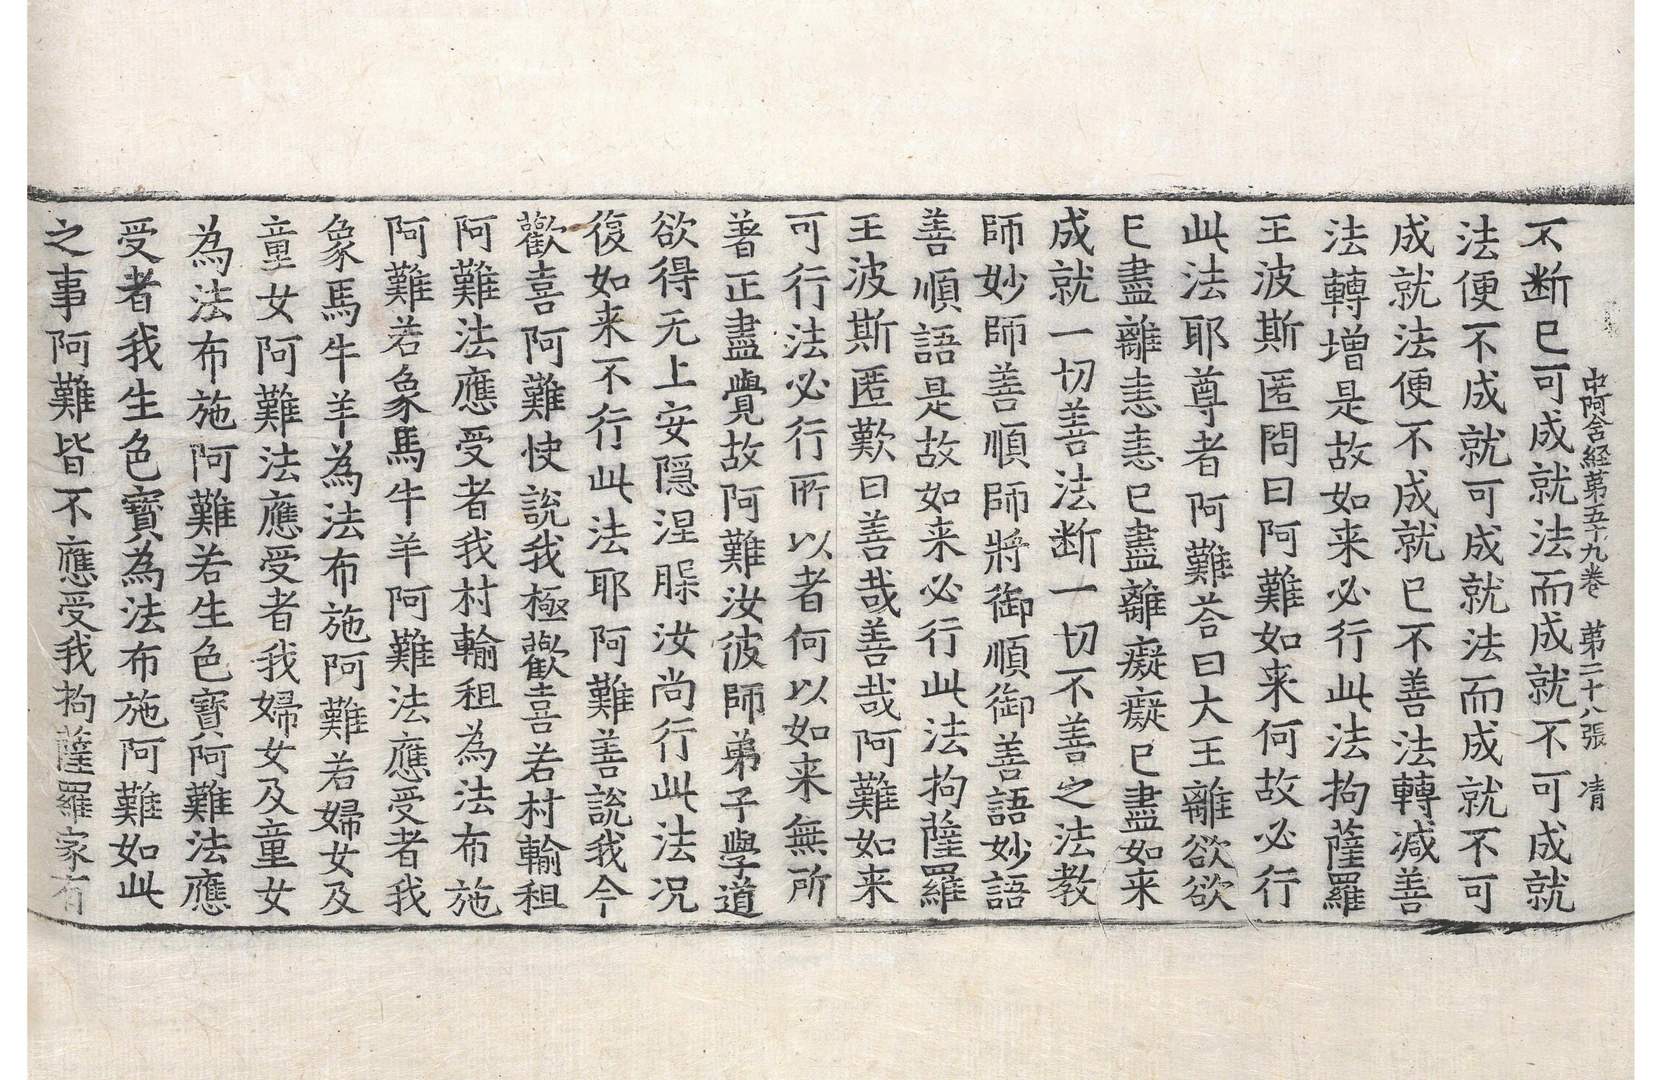 中阿含経第五十九卷　第二十八張　清
不断已可成就法而成就不可成就
法便不成就可成就法而成就不可
成就法便不成就已不善法轉减善
法轉增是故如来必行此法拘薩羅
王波斯匿問曰阿難如来何故必行
此法耶尊者阿難荅曰大王離欲欲
已盡離恚恚已盡離癡癡已盡如来
成就一切善法断一切不善之法教
師妙師善順師將御順御善語妙語
善順語是故如来必行此法拘薩羅
王波斯匿歎曰善哉善哉阿難如来
可行法必行所以者何以如来無所
著正盡覺故阿難汝彼師弟子學道
欲得无上安隱涅槃汝尚行此法况
復如来不行此法耶阿難善說我今
歡喜阿難快說我極歡喜若村輸租
阿難法應受者我村輸租為法布施
阿難若象馬牛羊阿難法應受者我
象馬牛羊為法布施阿難若婦女及
童女阿難法應受者我婦女及童女
為法布施阿難若生色寶阿難法應
受者我生色寶為法布施阿難如此
之事阿難皆不應受我拘薩羅家有